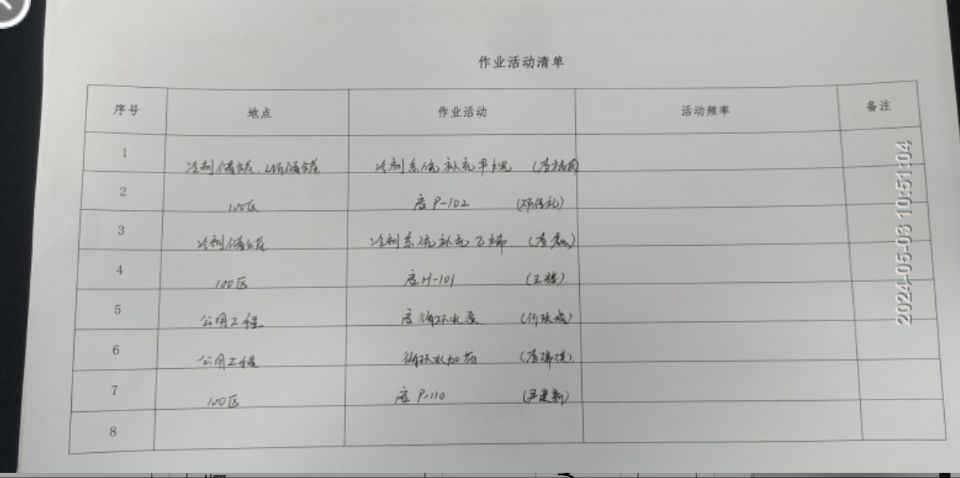 作业活动清单
序号 地点 作业活动 活动频率 备注
1 冷剂储罐、LNG储罐 冷剂系统补充甲烷
2 100区 启P-102
3 冷剂储罐 冷剂系统补充乙烯
4 100区 启H-101 (王
5 公用工程 启循环水泵
6 公用工程 循环水加药
7 100区 启P-110 (尹建新)
8
2024-05-03 10:51:04